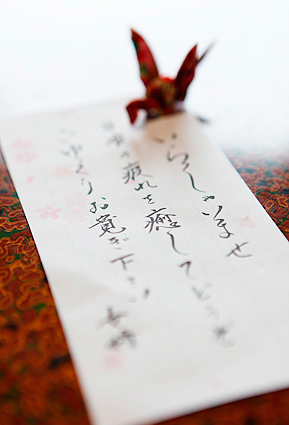 いらっしゃいませ
日頃の疲れを癒してどうぞ
ごゆっくりお寛ぎ下さい
女将